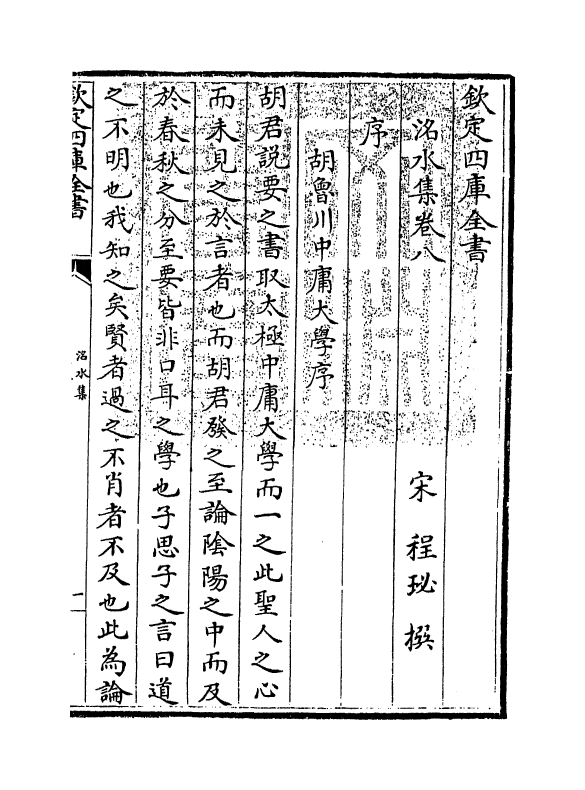 欽定四庫全書
洺水集卷八
宋 程珌 撰
序
胡魯川中庸大學序
胡君説要之書取太極中庸大學而一之此聖人之心
而未見之於言者也而胡君發之至論陰陽之中而及
於春秋之分至要皆非口耳之學也子思子之言曰道
之不明也我知之矣賢者過之不肖者不及也此為論
欽定四庫全書
洺水集
一